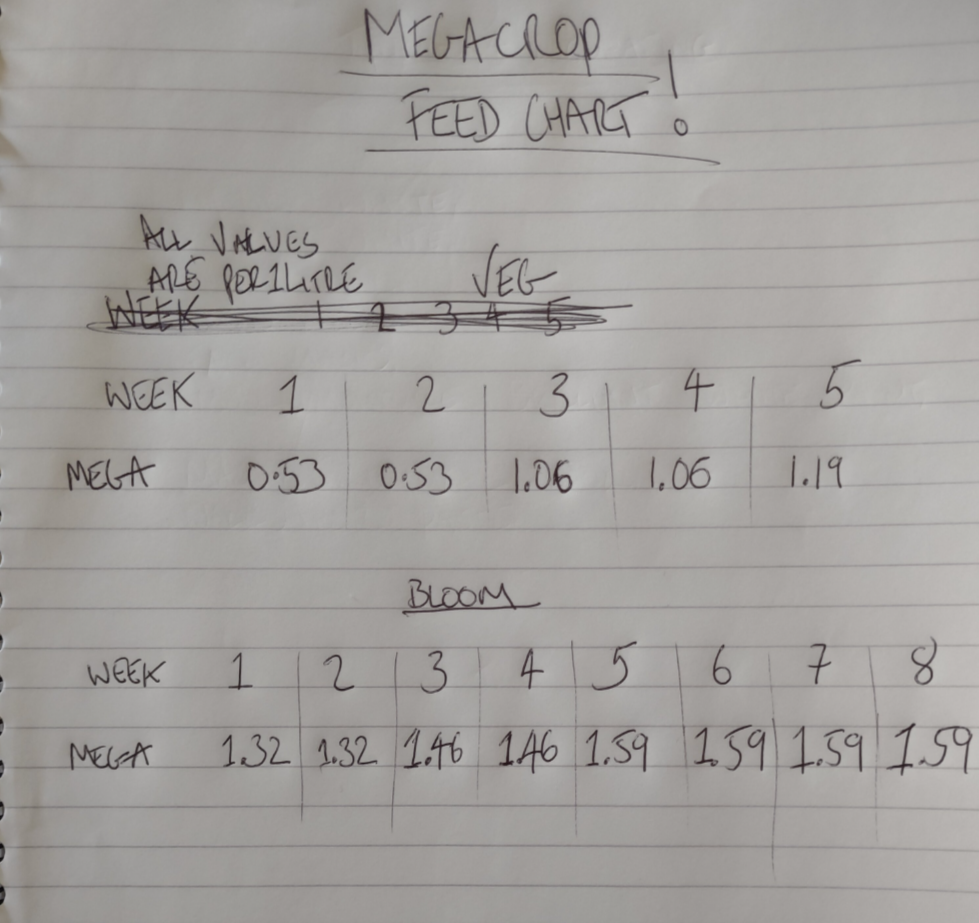 MEGACROP
FEED CHART!
ALL VALUES
ARE PER 1 LITRE
VEG
WEEK 1 2 3 4 5
WEEK 1 2 3 4 5
MEGA 0.53 0.53 1.06 1.06 1.19
BLOOM
WEEK 1 2 3 4 5 6 7 8
MEGA 1.32 1.32 1.46 1.46 1.59 1.59 1.59 1.59